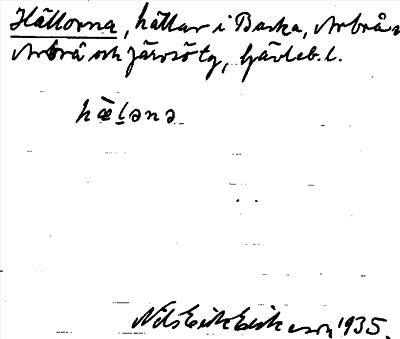 Hällorna, hällar i Backa, Arbrå s
Arbrå och Järvsö tg, Gävleb. l.
hæ̀ḷənə
Nils Erik Eriksson 1935.